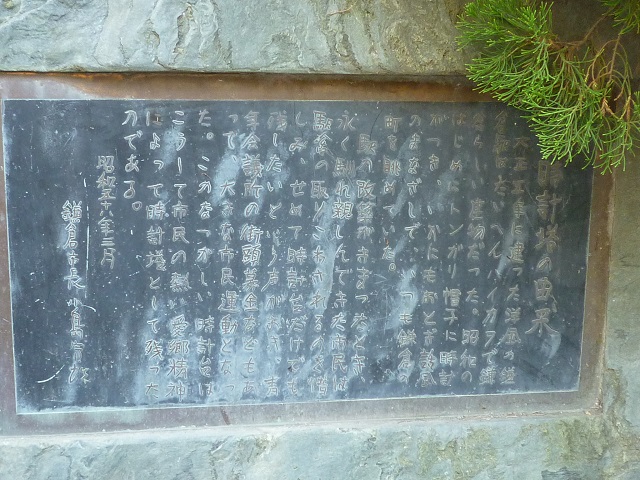 時計塔の由来
大正五年に建った洋風の鎌
倉駅はたいへんハイカラで鎌
倉らしい建物だった。昭和の
はじめにトンガリ帽子に時計
がつき、いかにもおとぎ話風
のまなざしで、いつも鎌倉の
町を眺めていた。
駅の改築がきまったとき、
永く馴れ親しんできた市民は
駅舎の取りこわされるのを惜
しみ、せめて時計台だけでも
残したいという声がおき、青
年会議所の街頭募金などもあ
って、大きな市民運動となっ
た。このなつかしい時計台は
こうして市民の熱い愛郷精神
によって時計塔として残った
のである。
昭和五十八年三月
鎌倉市長